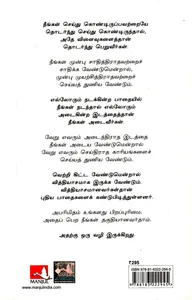 நீங்கள் செய்து கொண்டிருப்பவற்றையே
தொடர்ந்து செய்து கொண்டிருந்தால்,
அதே விளைவுகளைத்தான்
தொடர்ந்து பெறுவீர்கள்.
நீங்கள் முன்பு சாதித்திராதவற்றைச்
சாதிக்க வேண்டுமென்றால், நீங்கள்
முன்பு முயற்சித்திராதவற்றைச்
செய்யத் துணிய வேண்டும்.
எல்லோரும் நடக்கின்ற பாதையில்
நீங்கள் நடந்தால், எல்லோரும்
அடைகின்ற இடத்தைத்தான்
நீங்கள் அடைவீர்கள்.
வேறு எவரும் அடைந்திராத இடத்தை
நீங்கள் அடைய வேண்டுமென்றால்
வேறு எவரும் செய்திராத காரியங்களைச்
செய்யத் துணிய வேண்டும்.
வெற்றி கிட்ட வேண்டுமென்றால்
வித்தியாசமாக இருக்க வேண்டும்.
வித்தியாசமானவர்கள்தான்
புதிய பாதைகளைக் கண்டுபிடித்துள்ளனர்.
அபரிமிதம் உங்களது பிறப்புரிமை.
அதைப் பெற நீங்கள் தகுதியானவர்தாம்.
அதற்கு ஒரு வழி இருக்கிறது.
₹295
MANJUL
www.manjulindia.com